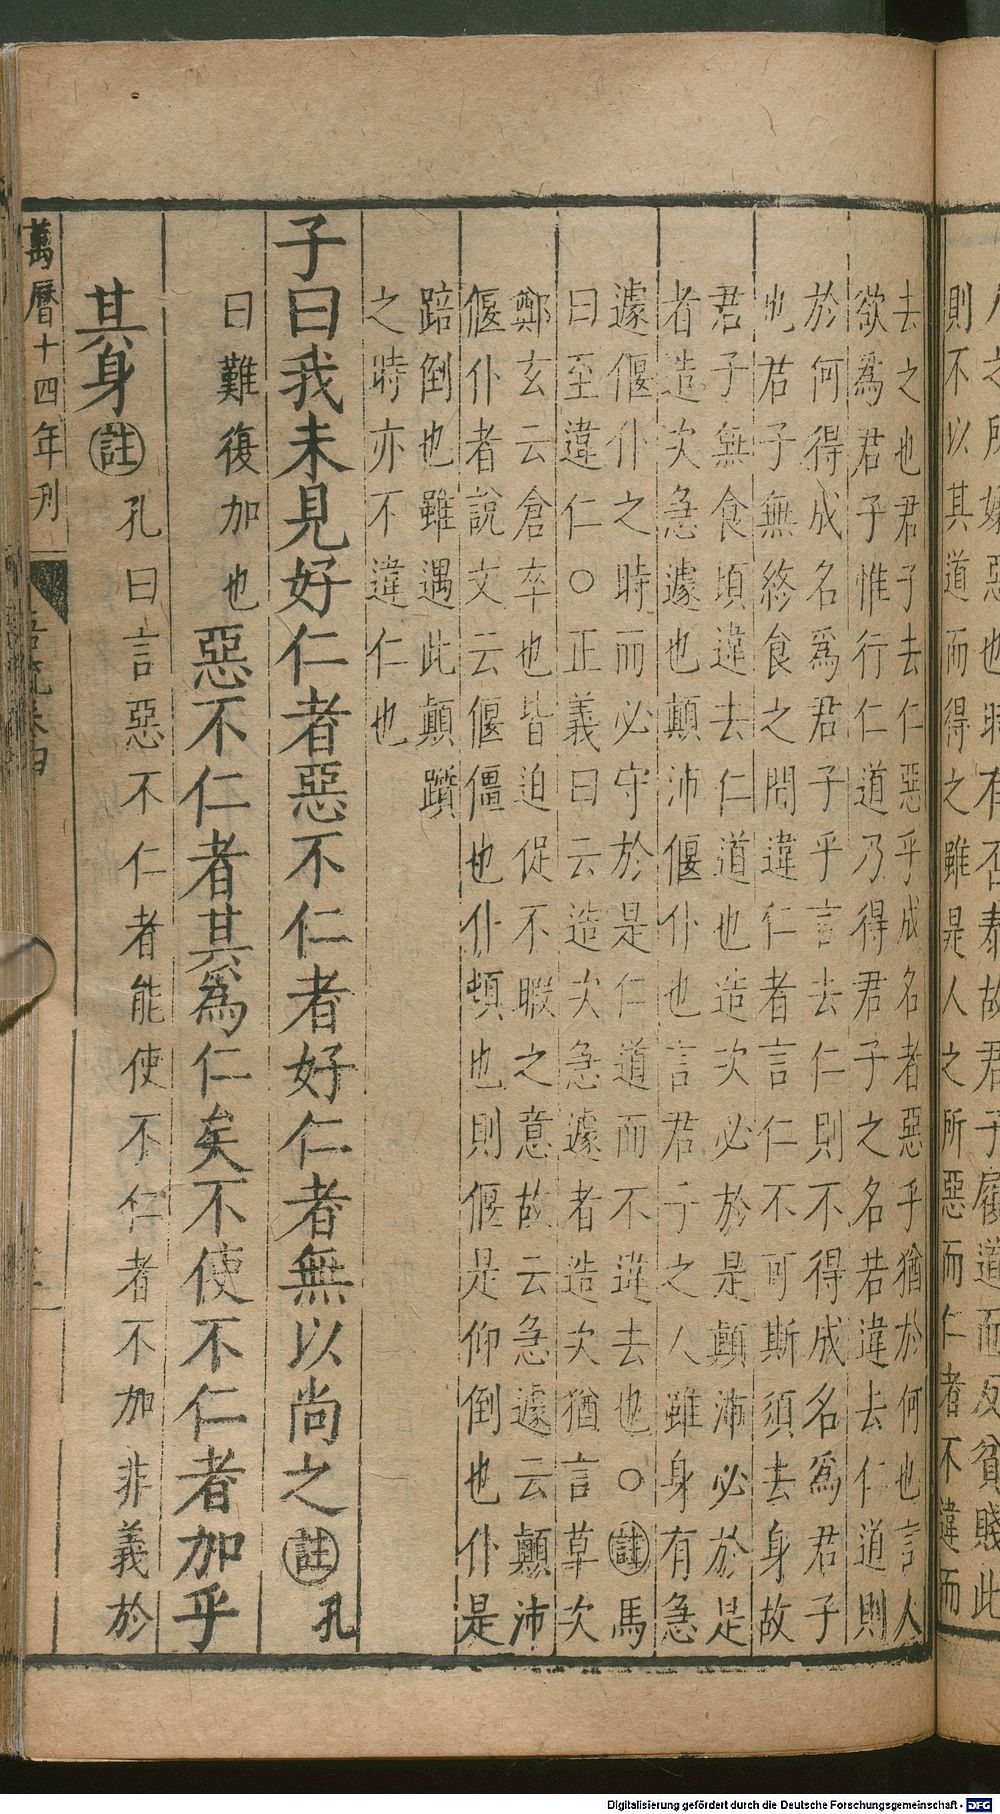 人之所嫉惡也時有否泰故君子履道而反貧賤此
則不以其道而得之雖是人之所惡而仁者不違而
去之也君子去仁惡乎成名者惡乎猶於何也言人
欲爲君子惟行仁道乃得君子之名若違去仁道則
於何得成名爲君子乎言去仁則不得成名爲君子
也君子無終食之間違仁者言仁不可斯須去身故
君子無食頃違去仁道也造次必於是顛沛必於是
者造次急遽也顛沛偃仆也言君子之人雖身有急
遽偃仆之時而必守於是仁道而不違去也○註馬
曰至違仁○正義曰云造次急遽者造次猶言草次
鄭玄云倉卒也皆迫促不暇之意故云急遽云顛沛
偃仆者說文云偃僵也仆頓也則偃是仰倒也仆是
踣倒也雖遇此顛躓
之時亦不違仁也
子曰我未見好仁者惡不仁者好仁者無以尚之註孔
曰難復加也惡不仁者其爲仁矣不使不仁者加乎
其身註孔曰言惡不仁者能使不仁者不加非義於
萬曆十四年刊
Digitalisierung gefördert durch die Deutsche Forschungsgemeinschaft - DFG